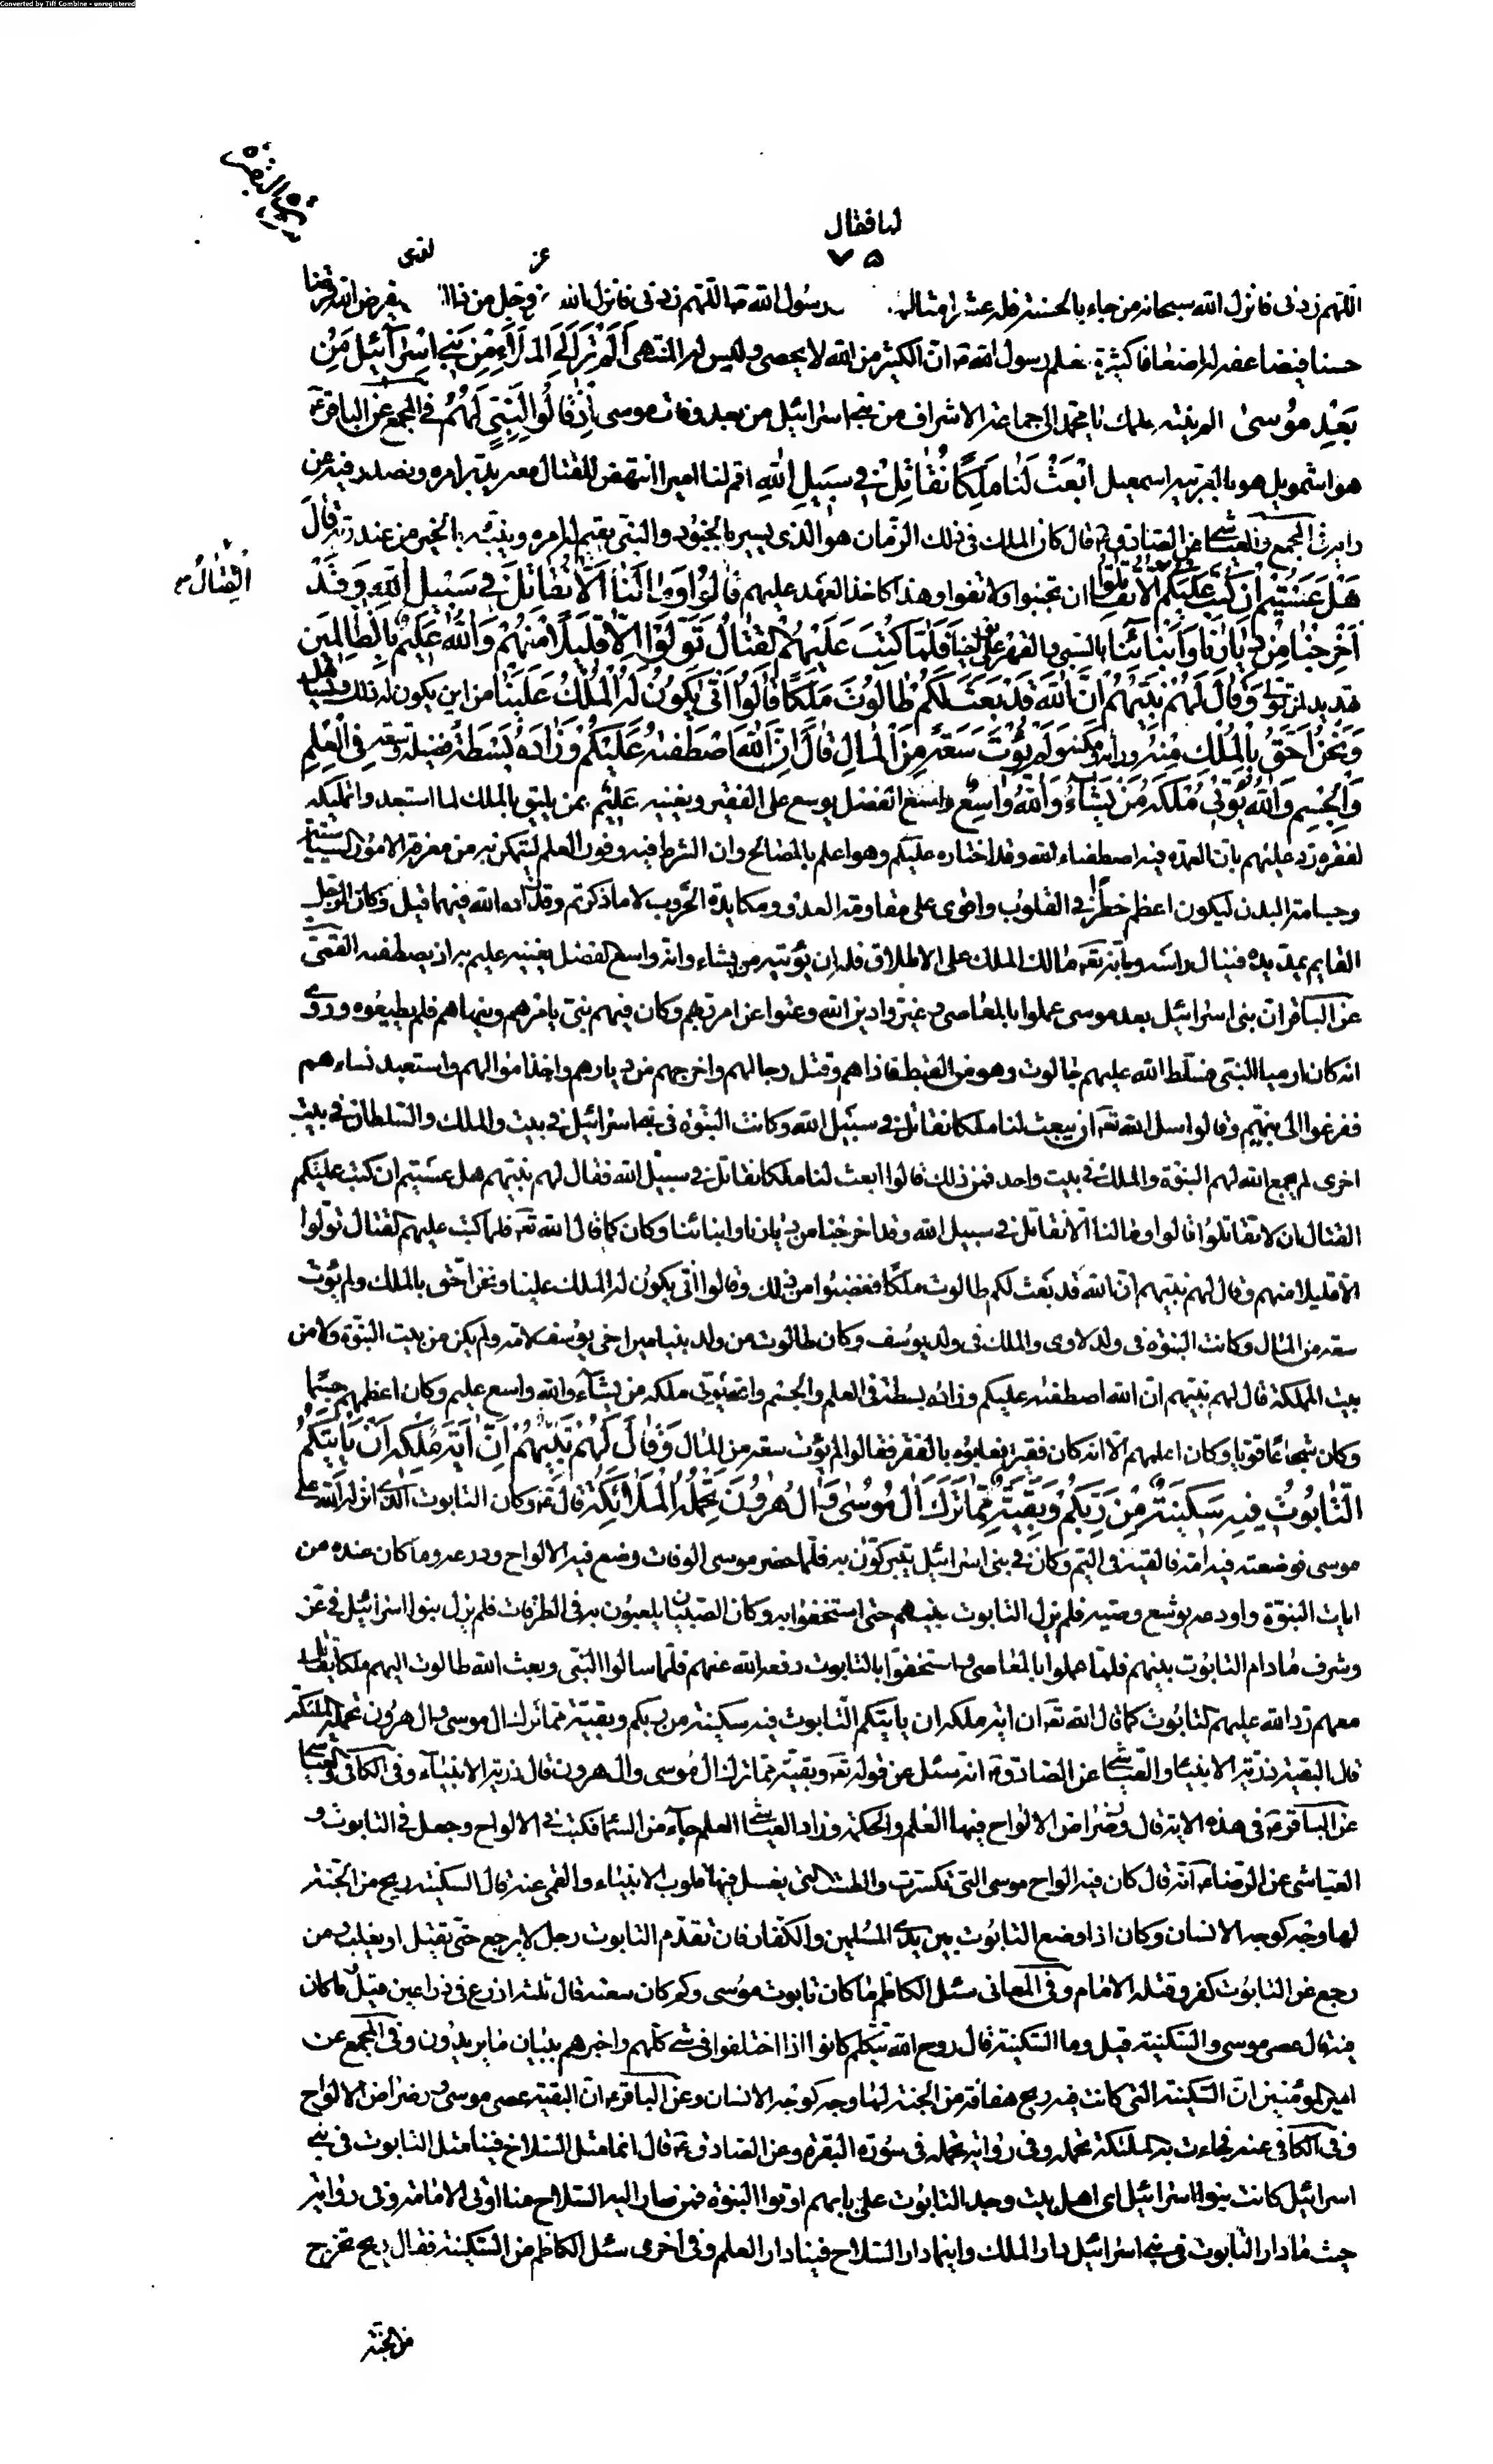 Converted by Tiff Combine - unregistered
سورة البقرة
لما فقال
٧٥
اللهم زدنی فانزل الله سبحانه من جاء بالحسنة فله عشر امثالها رسول الله ص اللهم زدنی فانزل الله عز وجل من ذا الذی يقرض الله قرضا
حسنا فيضاعفه له اضعافا كثيرة فعلم رسول الله ص ان الكثير من الله لا يحصى وليس له المنتهى أَلَمْ تَرَ إِلَى الْمَلَاءِ مِنْ بَنِي إِسْرَآئِيلَ مِنْ
بَعْدِ مُوسىٰ الم ينته علمك يا محمد الى جماعة الاشراف من بنی اسرائيل من بعد وفات موسى إِذْ قالُوا لِنَبِيٍّ لَهُمُ فی المجمع عن الباقر ع
هو اشمويل هو بالعربية اسمعيل ابْعَثْ لَنا مَلِكًا نُقاتِلْ فِي سَبِيلِ اللهِ اقم لنا اميرا ننتهض للقتال معه يدبر امره ونصدر فيه عن
رايه فی المجمع والعياشی عن الصادق ع قال كان الملك فی ذلك الزمان هو الذی يسير بالجنود والنبی يقيم له امره وينبئه بالخبر من عند ربه قالَ
هَلْ عَسَيْتُمْ إِنْ كُتِبَ عَلَيْكُمُ الْقِتالُ أَلَّا تُقاتِلُوا ان تجبنوا ولا تفوا وهذا كاخذ العهد عليهم قالُوا وَما لَنا أَلَّا نُقاتِلَ فِي سَبِيلِ اللهِ وَقَدْ
أُخْرِجْنا مِنْ دِيارِنا وَأَبْنائِنا بالسبی والقهر على نواحينا فَلَمّا كُتِبَ عَلَيْهِمُ الْقِتالُ تَوَلَّوْا إِلّا قَلِيلًا مِنْهُمْ وَاللهُ عَلِيمٌ بِالظّالِمِينَ
تهديد لمن تولى وَقالَ لَهُمْ نَبِيُّهُمْ إِنَّ اللهَ قَدْ بَعَثَ لَكُمْ طالُوتَ مَلِكًا قالُوا أَنّى يَكُونُ لَهُ الْمُلْكُ عَلَيْنا من اين يكون له ذلك ويستاهل
وَنَحْنُ أَحَقُّ بِالْمُلْكِ مِنْهُ وراثة ومكنة وَلَمْ يُؤْتَ سَعَةً مِنَ الْمالِ قالَ إِنَّ اللهَ اصْطَفٰيهُ عَلَيْكُمْ وَزادَهُ بَسْطَةً فضيلة وسعة فِي الْعِلْمِ
وَالْجِسْمِ وَاللهُ يُؤْتِي مُلْكَهُ مَنْ يَشآءُ وَاللهُ واسِعٌ واسع الفضل يوسع على الفقير ويغنيه عَلِيمٌ بمن يليق بالملك لما استبعدوا تملكه
لفقره رد عليهم بان العمدة فيه اصطفاء الله وقد اختاره عليكم وهو اعلم بالمصالح وان الشرط فيه وفور العلم ليتمكن به من معرفة الامور السياسية
وجسامة البدن ليكون اعظم خطرا فی القلوب واقوى على مقاومة العدو ومكايدة الحروب لا ما ذكرتم وقد زاده الله فيهما قيل وكان الرجل
القايم يمد يده فينال راسه وبانه تعه مالك الملك على الاطلاق فله ان يؤتيه من يشاء وانه واسع الفضل يغنيه عليم به اذ يصطفيه القمی
عن الباقر ان بنی اسرائيل بعد موسى عملوا بالمعاصی وغيروا دين الله وعتوا عن امر ربهم وكان فيهم نبی يامرهم وينهاهم فلم يطيعوه وروی
انه كان ارميا النبی فسلط الله عليهم جالوت وهو من القبط فاذاهم وقتل رجالهم واخرجهم من ديارهم واخذ اموالهم واستعبد نساءهم
ففزعوا الى نبيهم وقالوا اسل الله تعه ان يبعث لنا ملكا نقاتل فی سبيل الله وكانت النبوة فی بنی اسرائيل فی بيت والملك والسلطان فی بيت
اخرى لم يجمع الله لهم النبوة والملك فی بيت واحد فمن ذلك قالوا ابعث لنا ملكا نقاتل فی سبيل الله فقال لهم نبيهم هل عسيتم ان كتب عليكم
القتال ان لا تقاتلوا قالوا وما لنا الا نقاتل فی سبيل الله وقد اخرجنا من ديارنا وابنائنا وكان كما قال الله تعه فلما كتب عليهم القتال تولوا
الا قليلا منهم وقال لهم نبيهم ان الله قد بعث لكم طالوت ملكا فغضبوا من ذلك وقالوا انى يكون له الملك علينا ونحن احق بالملك ولم يؤت
سعة من المال وكانت النبوة فی ولد لاوى والملك فی ولد يوسف وكان طالوت من ولد بنيامين اخی يوسف لامه ولم يكن من بيت النبوة ولا من
بيت المملكة قال لهم نبيهم ان الله اصطفيه عليكم وزاده بسطة فی العلم والجسم والله يؤتی ملكه من يشآء والله واسع عليم وكان اعظمهم جسما
وكان شجاعا قويا وكان اعلمهم الا انه كان فقيرا فعابوه بالفقر فقالوا لم يؤت سعة من المال وَقالَ لَهُمْ نَبِيُّهُمْ إِنَّ آيَةَ مُلْكِهِ أَنْ يَأْتِيَكُمُ
التّابُوتُ فِيهِ سَكِينَةٌ مِنْ رَبِّكُمْ وَبَقِيَّةٌ مِمّا تَرَكَ آلُ مُوسى وَآلُ هٰرُونَ تَحْمِلُهُ الْمَلائِكَةُ قال ع وكان التابوت الذی انزله الله على
موسى فوضعته فيه امه فالقته فی اليم وكان فی بنی اسرائيل يتبركون به فلما حضر موسى الوفات وضع فيه الالواح ودرعه وما كان عنده من
ايات النبوة واودعه يوشع وصيه فلم يزل التابوت بينهم حتى استخفوا به وكان الصبيان يلعبون به فی الطرقات فلم يزل بنوا اسرائيل فی عز
وشرف مادام التابوت بينهم فلما عملوا بالمعاصی واستخفوا بالتابوت رفعه الله عنهم فلما سالوا النبی وبعث الله طالوت اليهم ملكا يقاتل
معهم رد الله عليهم التابوت كما قال الله تعه ان اية ملكه ان ياتيكم التابوت فيه سكينة من ربكم وبقية مما ترك ال موسى وال هرون تحمله الملئكة
قال البقية ذرية الانبياء والعياشی عن الصادق ع انه سئل عن قوله تعه وبقية مما ترك ال موسى وال هرون قال ذرية الانبيآء وفی الكافی والعياشی
عن الباقر ع فی هذه الاية قال رضراض الالواح فيها العلم والحكمة وزاد العياشی العلم جآء من السماء فكتب فی الالواح وجعل فی التابوت و
العياشی عن الرضا ع انه قال كان فيه الواح موسى التی تكسرت والطشت التی يغسل فيها قلوب الانبياء والقمی عنه قال السكينة ريح من الجنة
لها وجه كوجه الانسان وكان اذا وضع التابوت بين يدی المسلمين والكفار فان تقدم التابوت رجل لا يرجع حتى يقتل او يغلب ومن
رجع عن التابوت كفر وقتله الامام وفی المعانی سئل الكاظم ما كان تابوت موسى وكم كان سعته قال ثلثة اذرع فی ذراعين قيل ما كان
فيه قال عصى موسى والسكينة قيل وما السكينة قال روح الله يتكلم كانوا اذا اختلفوا فی شئ كلمهم واخبرهم ببيان ما يريدون وفی المجمع عن
امير المؤمنين ان السكينة التی كانت فيه ريح هفافة من الجنة لها وجه كوجه الانسان وعن الباقر ع ان البقية عصى موسى ورضراض الالواح
وفی الكافی عنه فجاءت به الملئكة تحمله وفی رواية تحمله فی سورة البقرة وعن الصادق ع قال انما مثل السلاح فينا مثل التابوت فی بنی
اسرائيل كانت بنوا اسرائيل ای اهل بيت وجد التابوت على بابهم اوتوا النبوة فمن صار اليه السلاح منا اوتی الامامة وفی رواية
حيث مادار التابوت فی بنی اسرائيل دار الملك واينما دار السلاح فينا دار العلم وفی اخرى سئل الكاظم عن السكينة فقال ريح تخرج
من الجنة